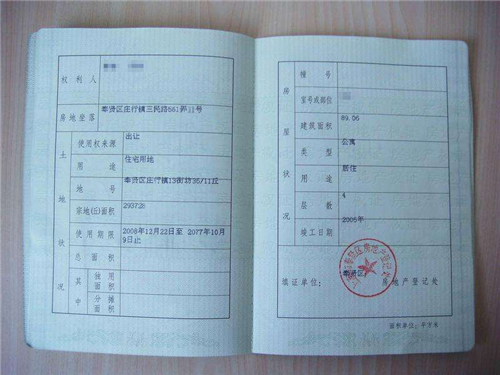 权利人
房地坐落 奉贤区庄行镇三民路861弄11号
土地状况
使用权来源 出让
用途 住宅用地
地号 奉贤区庄行镇13街坊36/11丘
宗地(丘)面积 29372
使用期限 2008年12月22日至 2077年10月
9日止
总面积
其中
使用面积
分摊面积
房屋状况
幢号
室号或部位
建筑面积 89.06
类型 公寓
用途 居住
层数 4
竣工日期 2005年
填证单位: 奉贤区 房地产登记处
面积单位: 平方米